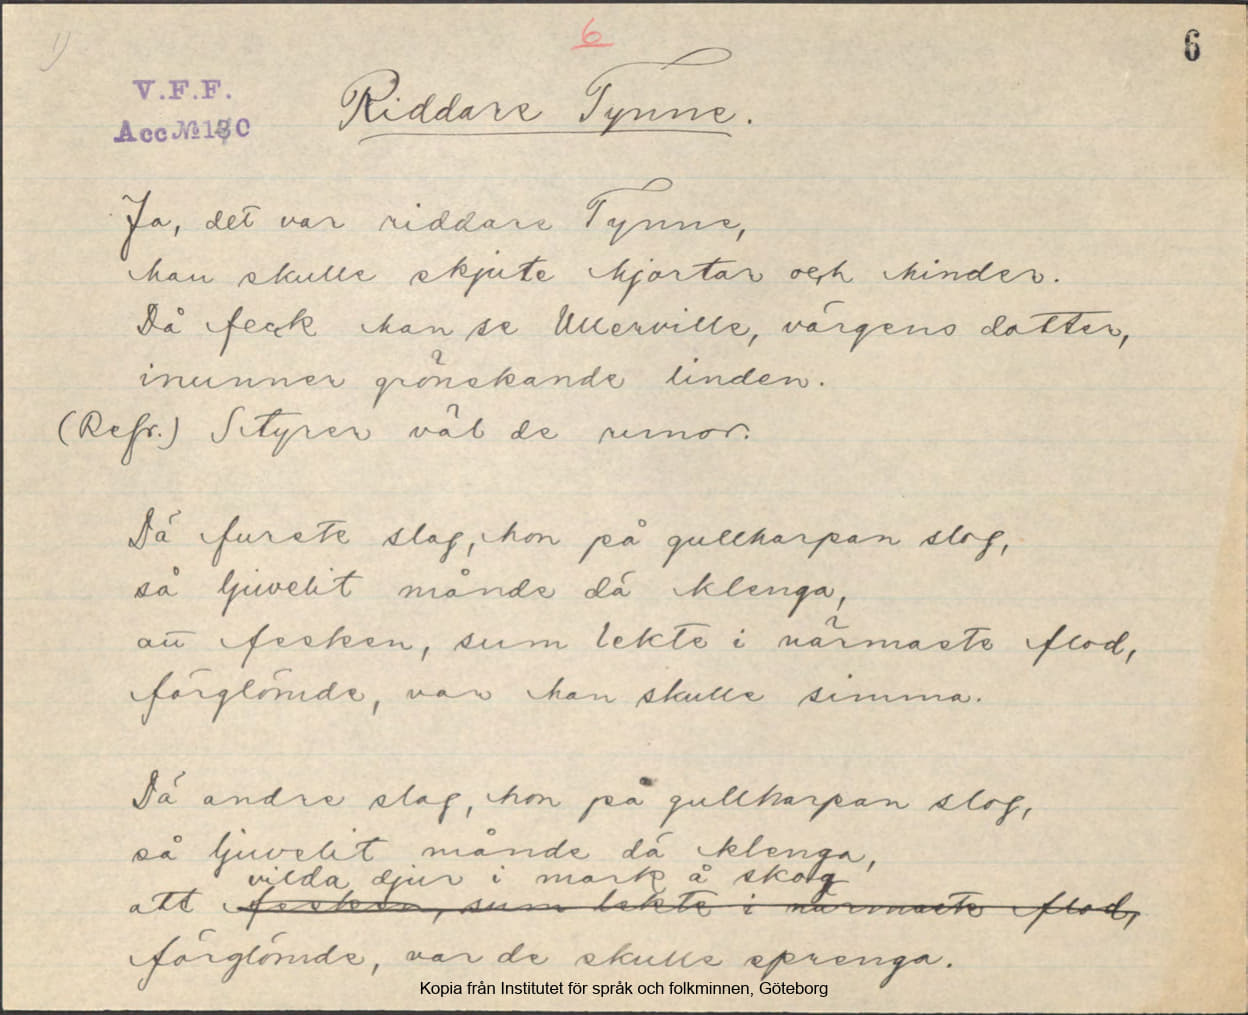 1)
6
6
V.F.F.
Acc № 130
Riddare Tynne.
Ja, det var riddare Tynne,
han skulle skjute hjortar och hinder.
Då feck han se Ullerville, värgens datter,
inunner grönskande linden.
(Refr.) I styren väl de runor.
Dä furste slag, hon på gullharpan slog,
så ljuvelit månde dä klenga,
att fesken, sum lekte i närmaste flod,
förglömde, var han skulle simma.
Dä andre slag, hon på gullharpan slog,
så ljuvelit månde dä klenga,
vilda djur i mark å skog
att fesken, sum lekte i närmaste flod,
förglömde, var de skulle sprenga.
Kopia från Institutet för språk och folkminnen, Göteborg